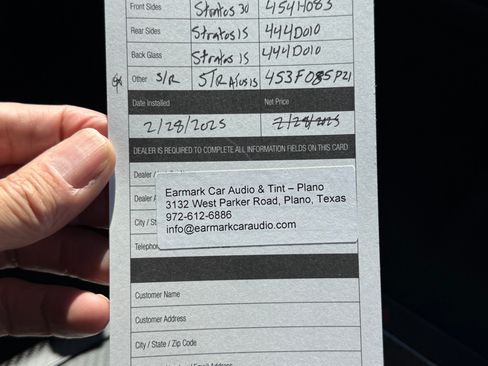 Front Sides Stratos 30 454H083
Rear Sides Stratos 15 444D010
Back Glass Stratos 15 444D010
Other S/R STRAtos 15 453F085P21
Date Installed Net Price
2/28/2025 2/28/2025
DEALER IS REQUIRED TO COMPLETE ALL INFORMATION FIELDS ON THIS CARD
Dealer /
Earmark Car Audio & Tint – Plano
Dealer A
3132 West Parker Road, Plano, Texas
972-612-6886
City / St
info@earmarkcaraudio.com
Telepho
Customer Name
Customer Address
City / State / Zip Code